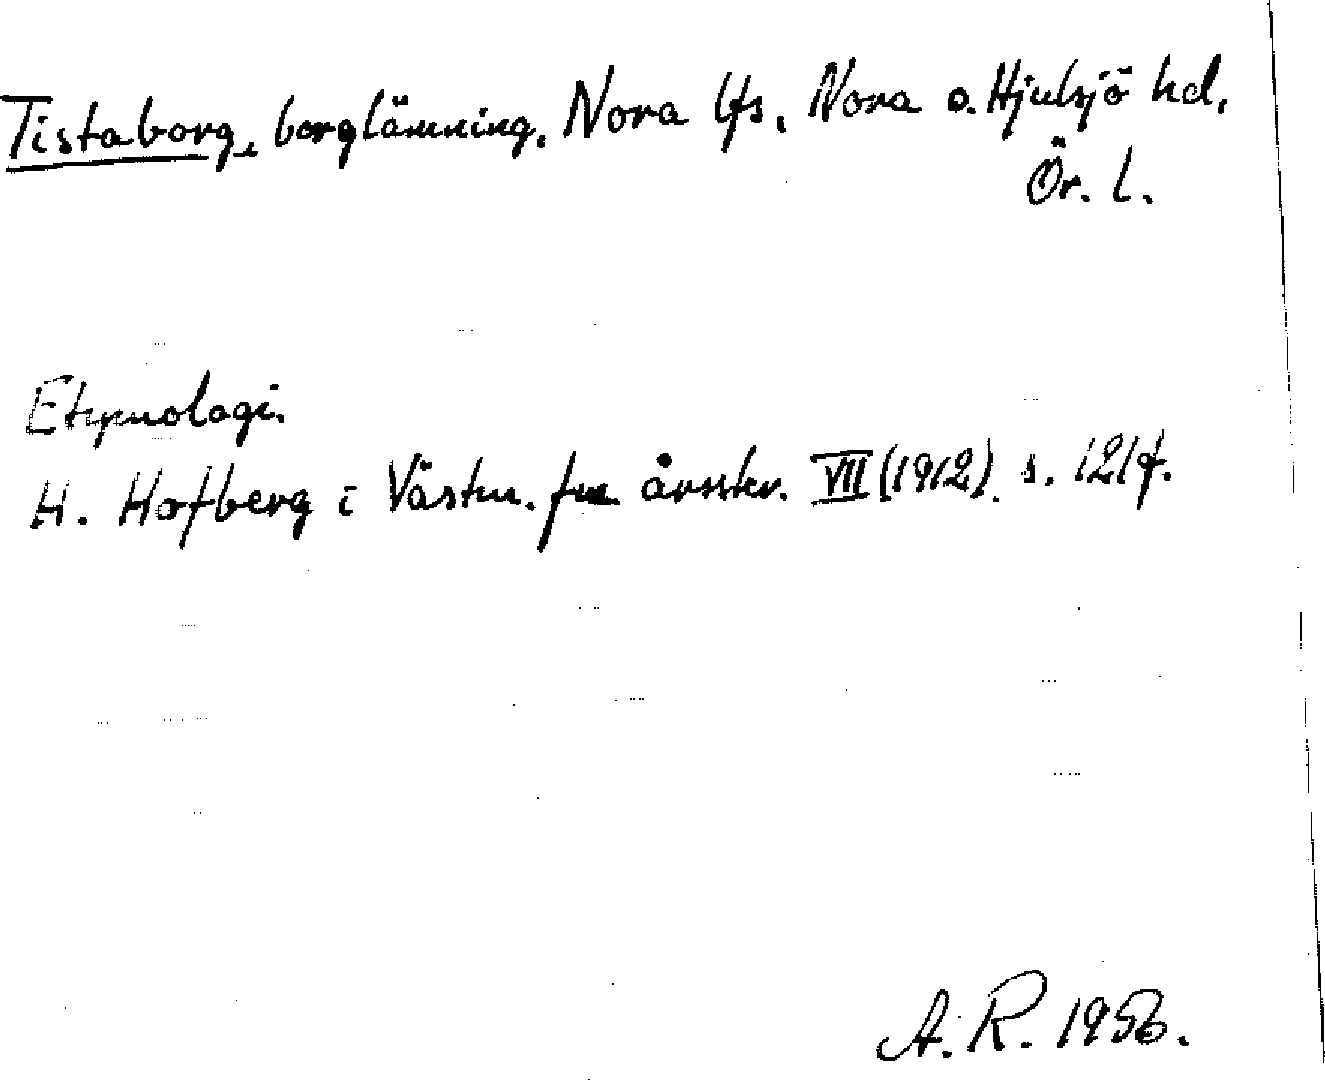 Tistaborg, borglämning, Nora lfs, Nora o. Hjulsjö hd,
Ör. l.
Etymologi.
H. Hofberg i Västm. fm årsskr. VII (1912). s. 121f.
A. R. 1956.